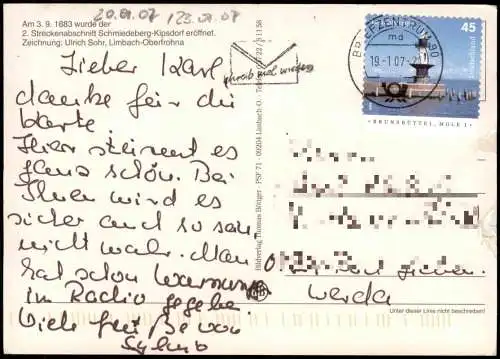 20.01.07 / 23.01.07
Am 3. 9. 1883 wurde der
2. Streckenabschnitt Schmiedeberg-Kipsdorf eröffnet.
Zeichnung: Ulrich Sohr, Limbach-Oberfrohna
Lieber Karl
danke für die
Karte.
Hier stürmt es
ganz schön. Bei
Ihnen wird es
sicher auch so sein,
nicht wahr. Man
hat schon Warnung
im Radio gegeben.
Viele Grüße von
Bildverlag Thomas Böttger · PSF 71 · 09204 Limbach-O.
schreib mal wieder
BRIEFZENTRUM 90
md
19.-1.07-21
45
Deutschland
BRUNSBÜTTEL, MOLE 1
Werda
Unter dieser Linie nicht beschreiben!